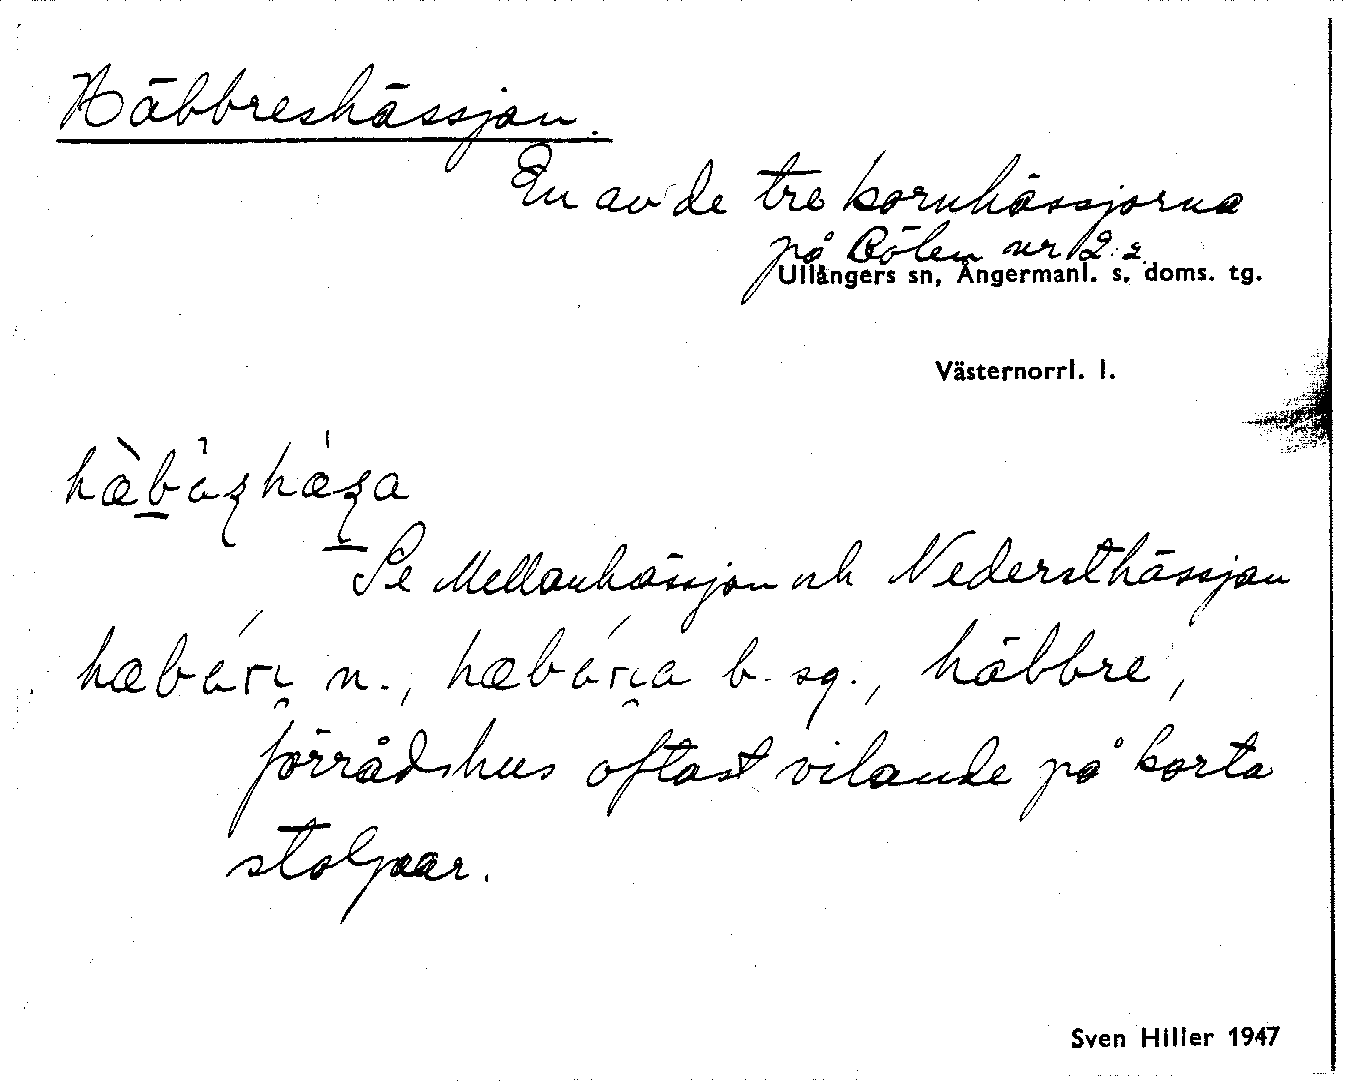 Häbbreshässjan.
En av de tre kornhässjorna
på Bölen nr 2:2.
Ullångers sn, Ångermanl. s. doms. tg.
Västernorrl. l.
Se Mellanhässjan och Nedersthässjan
n., b. sg., häbbre,
förrådshus oftast vilande på korta
stolpar.
Sven Hiller 1947